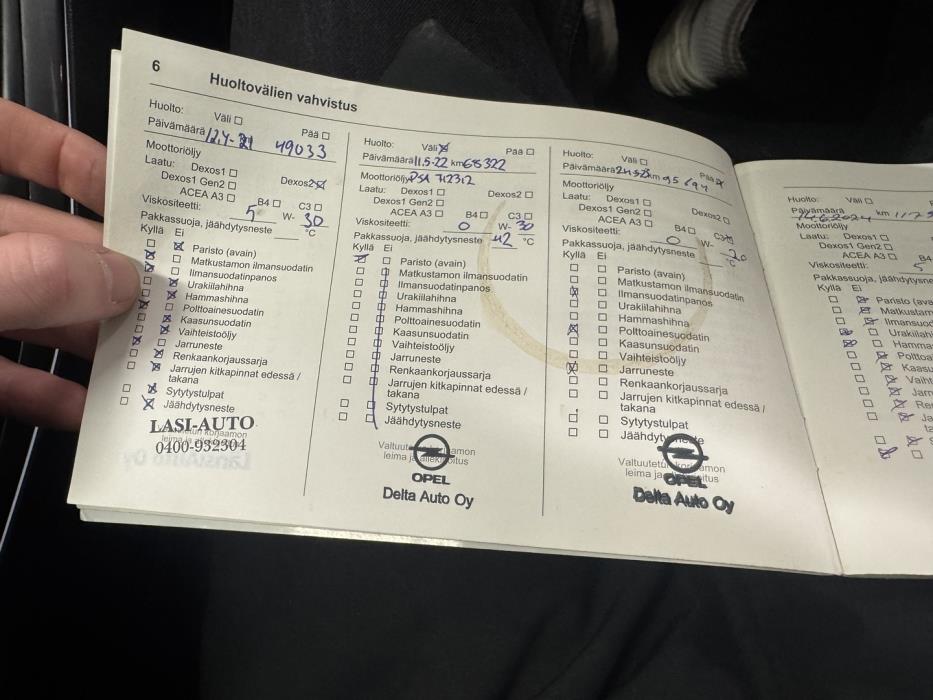 6
Huoltovälien vahvistus
Huolto: Väli Pää
Päivämäärä 12.4-21 49033
Moottoriöljy
Laatu: Dexos1 Dexos2
Dexos1 Gen2
ACEA A3 B4 C3
Viskositeetti: 5 W- 30
Pakkassuoja, jäähdytysneste °C
Kyllä Ei
Paristo (avain)
Matkustamon ilmansuodatin
Ilmansuodatinpanos
Urakiilahihna
Hammashihna
Polttoainesuodatin
Kaasunsuodatin
Vaihteistoöljy
Jarruneste
Renkaankorjaussarja
Jarrujen kitkapinnat edessä /
takana
Sytytystulpat
Jäähdytysneste
LASI-AUTO
0400-932304
Huolto: Väli Pää
Päivämäärä 11.5-22 km 68322
Moottoriöljy PSA 712312
Laatu: Dexos1 Dexos2
Dexos1 Gen2
ACEA A3 B4 C3
Viskositeetti: 0 W- 30
Pakkassuoja, jäähdytysneste 42 °C
Kyllä Ei
Paristo (avain)
Matkustamon ilmansuodatin
Ilmansuodatinpanos
Urakiilahihna
Hammashihna
Polttoainesuodatin
Kaasunsuodatin
Vaihteistoöljy
Jarruneste
Renkaankorjaussarja
Jarrujen kitkapinnat edessä /
takana
Sytytystulpat
Jäähdytysneste
OPEL
Delta Auto Oy
Huolto: Väli Pää
Päivämäärä km 95694
Moottoriöljy
Laatu: Dexos1 Dexos2
Dexos1 Gen2
ACEA A3 B4 C3
Viskositeetti: 0 W- 20
Pakkassuoja, jäähdytysneste °C
Kyllä Ei
Paristo (avain)
Matkustamon ilmansuodatin
Ilmansuodatinpanos
Urakiilahihna
Hammashihna
Polttoainesuodatin
Kaasunsuodatin
Vaihteistoöljy
Jarruneste
Renkaankorjaussarja
Jarrujen kitkapinnat edessä /
takana
Sytytystulpat
Jäähdytysneste
OPEL
Delta Auto Oy
Huolto: Väli
Päivämäärä 14.6.2024 km
Moottoriöljy
Laatu: Dexos1
Dexos1 Gen2
ACEA A3 B4
Viskositeetti: 5
Pakkassuoja, jäähdytysneste
Kyllä Ei
Paristo (ava
Matkustam
Ilmansuod
Urakiilahi
Hamma
Polttoa
Kaasu
Vaiht
Jarr
Re
Ja
ta
S